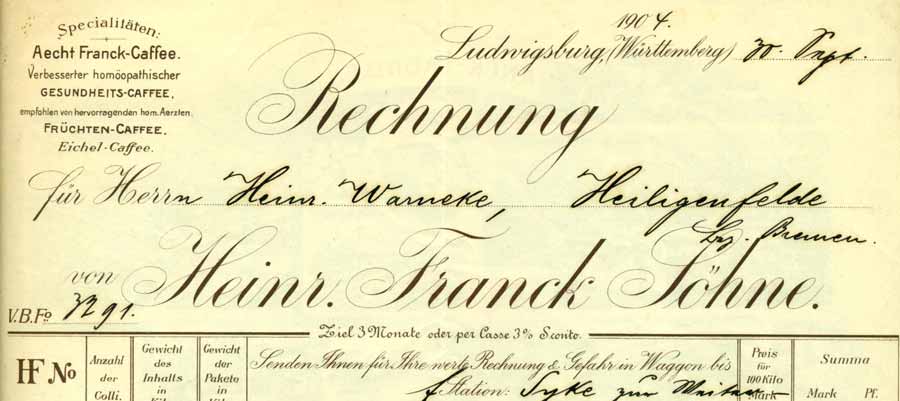 Specialitäten:
Aecht Franck-Caffee.
Verbesserter homöopathischer
GESUNDHEITS-CAFFEE,
empfohlen von hervorragenden hom. Aerzten.
FRÜCHTEN-CAFFEE.
Eichel-Caffee.
1904.
Ludwigsburg, (Württemberg) 30. Sept.
Rechnung
für Herrn Heinr. Warneke, Heiligenfelde
Bremen.
von Heinr. Franck Söhne.
V.B.Fo. 3291.
Ziel 3 Monate oder per Casse 3% Sconto.
HF No
Anzahl
der
Colli.
Gewicht
des
Inhalts
in
Gewicht
der
Pakete
in
Senden Ihnen für Ihre werte Rechnung & Gefahr in Waggon bis
Station: Syke zur
Preis
für
100 Kilo
Mark
Summa
Mark Pf.